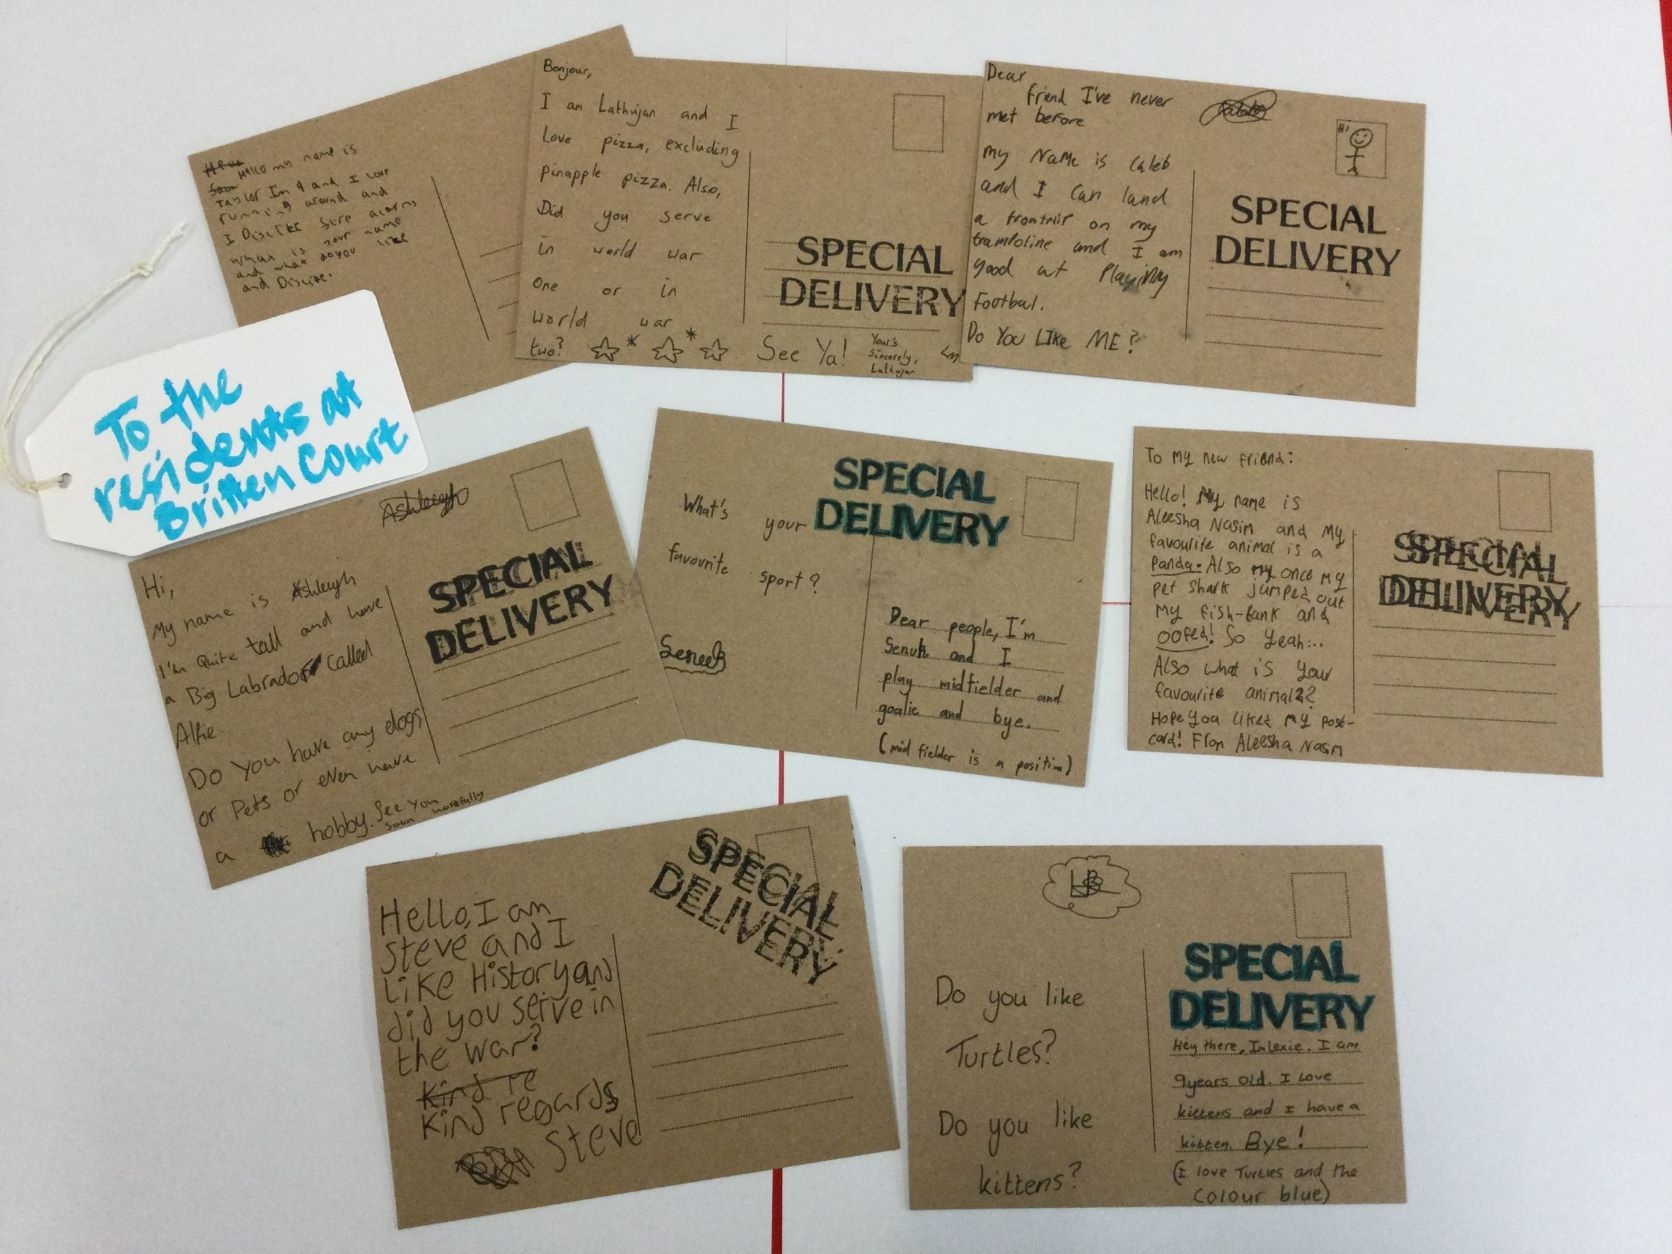 To the
residents at
Britten Court
Hello my name is
Taylor Im 9 and I love
running around and
I Disclike fire alarms
what is your name
and what do you like
and Disclike.
Bonjour,
I am Lathujan and I
Love pizza, excluding
pinapple pizza. Also,
Did you serve
in world war
one or in
world war
two?
See Ya!
Your's
Sincerely,
Lathujan
SPECIAL
DELIVERY
Dear
friend I've never
met before
my NaMe is Caleb
and I can land
a frontflir on my
trampoline and I am
good at PlayiNg
Football.
Do You LIke ME?
Hi
SPECIAL
DELIVERY
Ashleigh
Hi,
My name is Ashleigh
I'm Quite tall and have
a Big Labrador called
Alfie.
Do you have any dogs
or Pets or even have
a hobby. See you
soon hopefully
SPECIAL
DELIVERY
What's your
favourite sport?
Senuk
SPECIAL
DELIVERY
Dear people, I'm
Senuk and I
play midfielder and
goalie and bye.
(mid fielder is a position)
To My new friend:
Hello! My name is
Aleesha Nasim and My
favourite animal is a
panda. Also my once my
pet shark jumped out
my fish-tank and
oofed! So yeah...
Also what is your
favourite animal??
Hope you liked my post-
card! From Aleesha Nasim
SPECIAL
DELIVERY
Hello, I am
Steve and I
Like History and
did you serve in
the war?
Kind re
Kind regards
Steve
SPECIAL
DELIVERY
Do you like
Turtles?
Do you like
kittens?
SPECIAL
DELIVERY
Hey there, Im lexie. I am
9years old. I love
kittens and I have a
kitten. Bye!
(I love Turtles and the
colour blue)